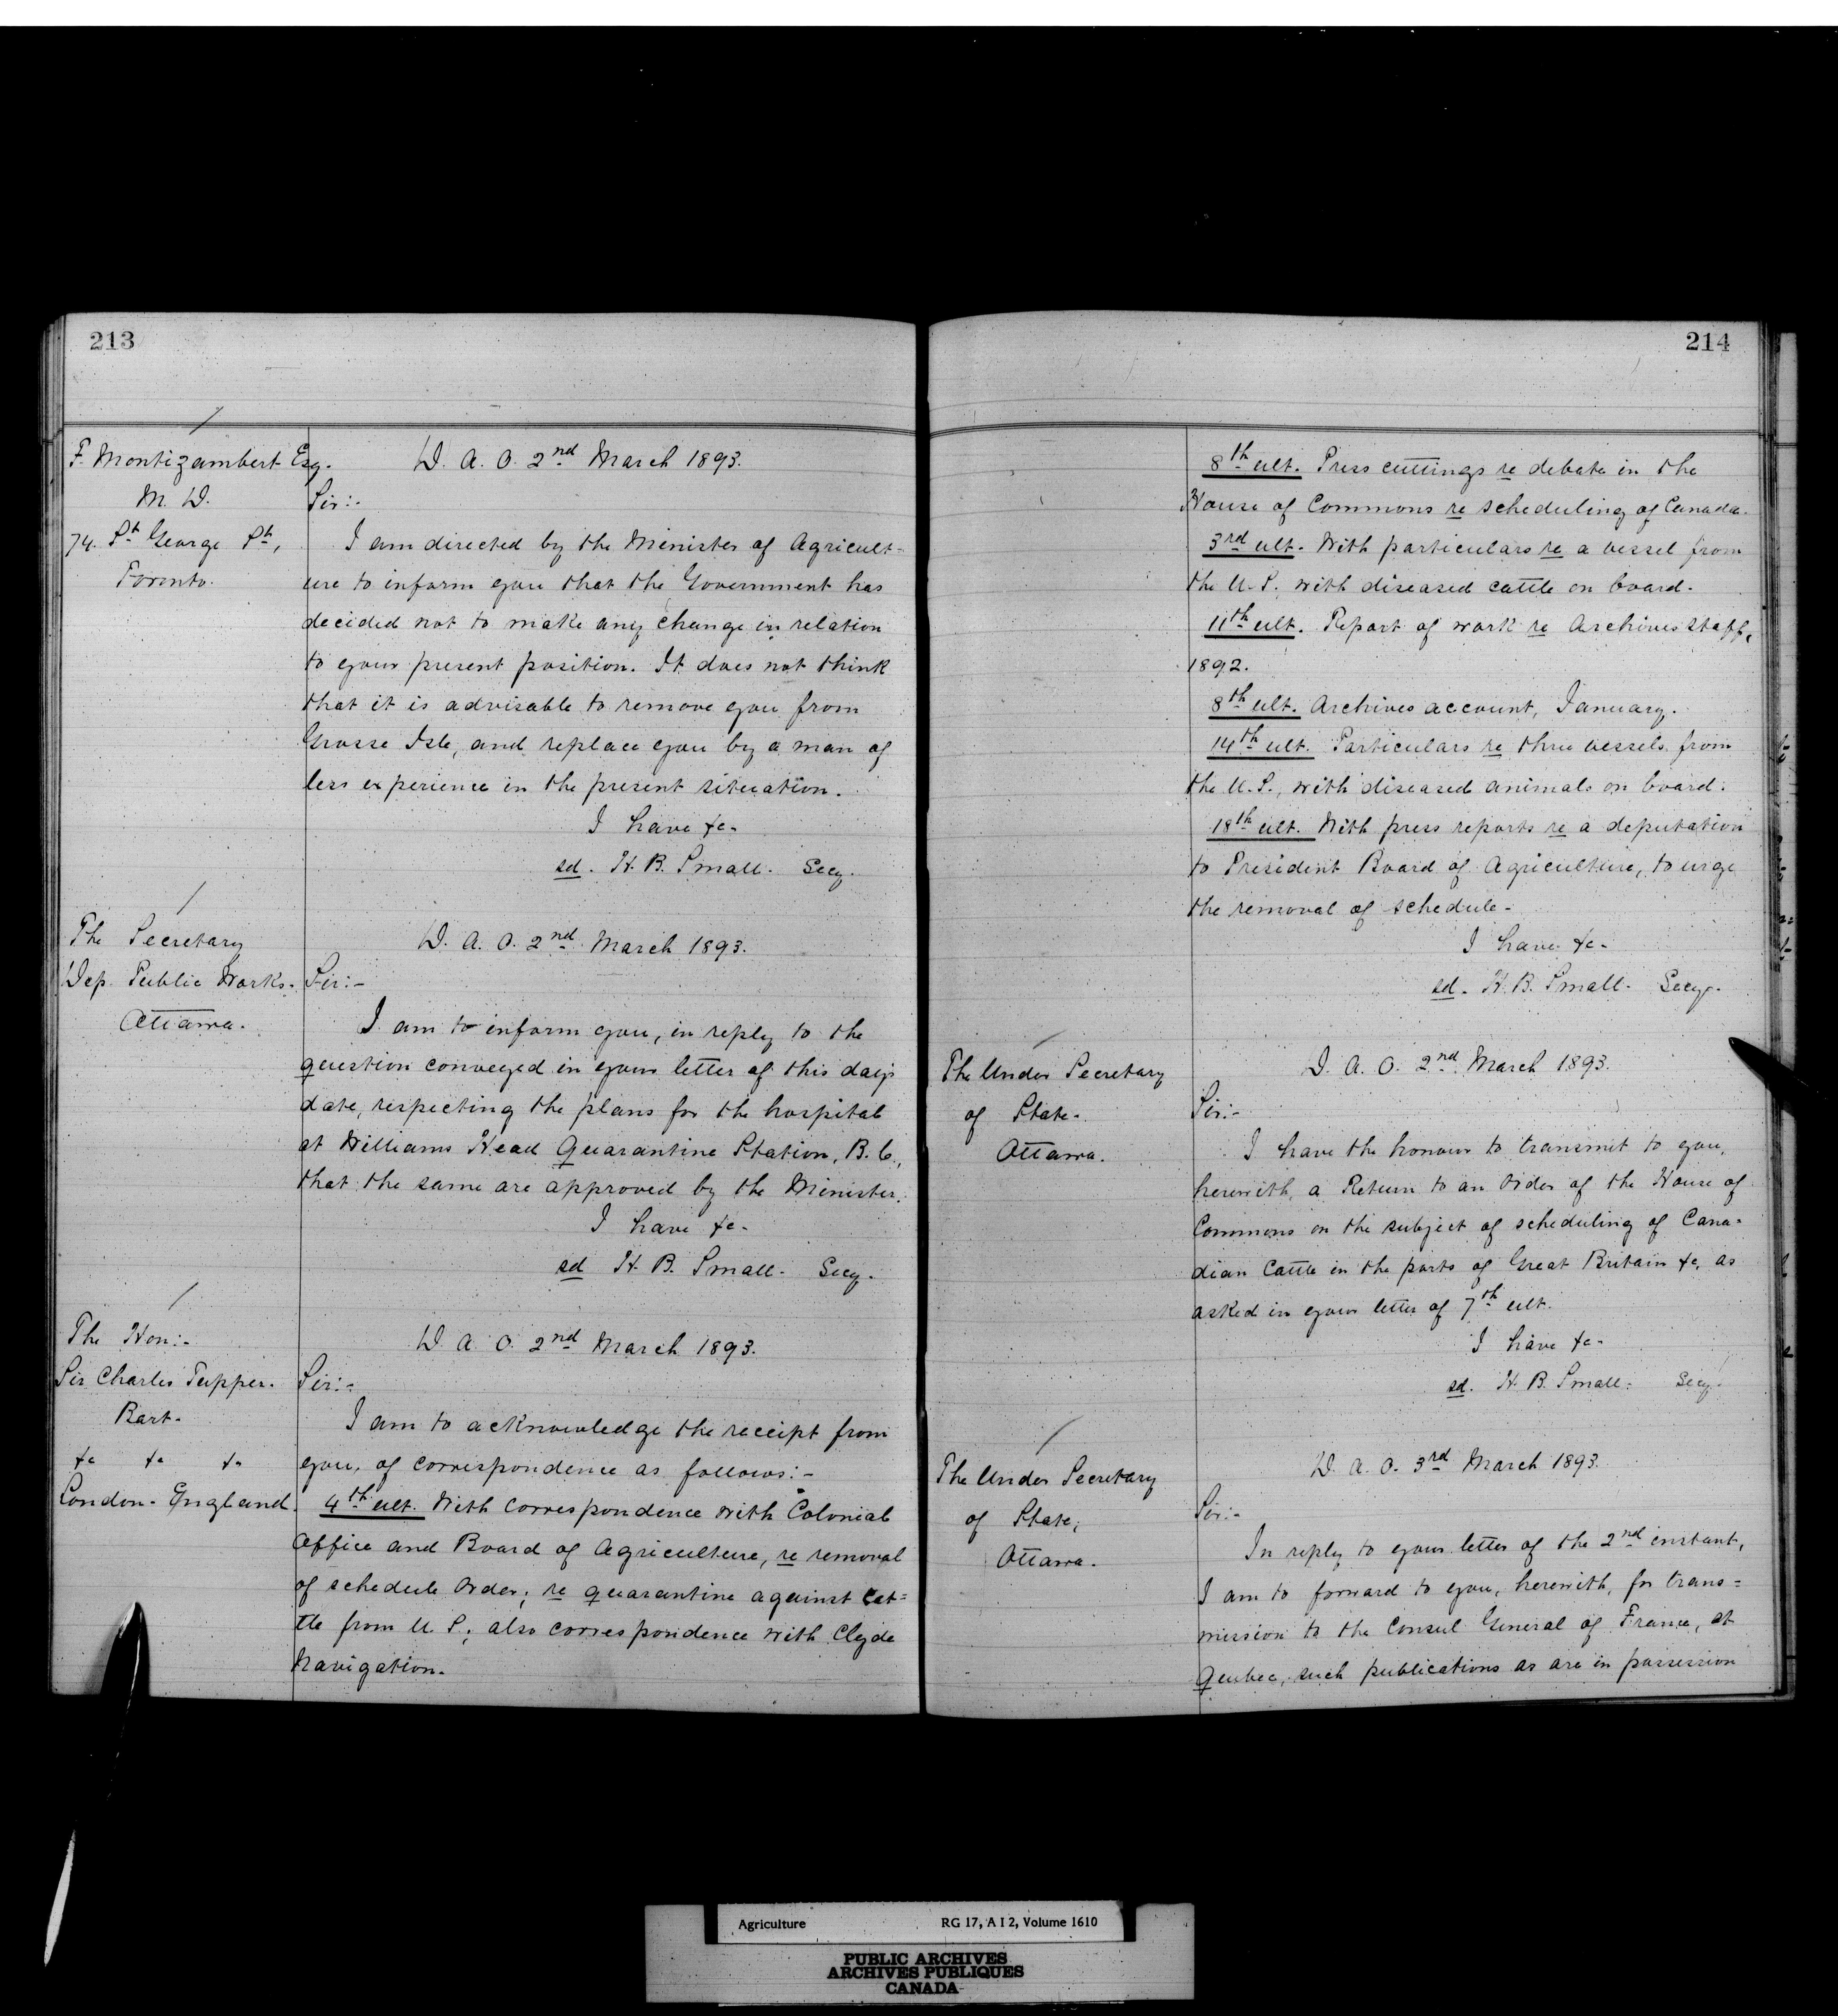 213
F. Montizambert Esq.
M. D.
74. St George St,
Toronto.
D. A. O. 2nd March 1893.
Sir:-
I am directed by the Minister of Agricult-
ure to inform you that the Government has
decided not to make any change in relation
to your present position. It does not think
that it is advisable to remove you from
Grosse Isle, and replace you by a man of
less experience in the present situation.
I have &c-
sd. H. B. Small. Secy.
The Secretary
Dep. Public Works.
Ottawa.
D. A. O. 2nd March 1893.
Sir:-
I am to inform you, in reply to the
question conveyed in your letter of this day's
date, respecting the plans for the hospital
at Williams Head Quarantine Station, B. C.,
that the same are approved by the Minister.
I have &c-
sd H. B. Small. Secy.
The Hon:-
Sir Charles Tupper.
Bart.
&c &c &c
London. England.
D. A. O. 2nd March 1893.
Sir:-
I am to acknowledge the receipt from
you, of correspondence as follows:-
4th ult. With correspondence with Colonial
Office and Board of Agriculture, re removal
of schedule Order; re quarantine against Cat=
tle from U. S; also correspondence with Clyde
Navigation.
214
8th ult. Press cuttings re debate in the
House of Commons re scheduling of Canada.
3rd ult. With particulars re a vessel from
the U. S, with diseased cattle on board.
11th ult. Report of work re Archives staff,
1892.
8th ult. Archives account, January.
14th ult. Particulars re three vessels from
the U. S., with diseased animals on board.
18th ult. With press reports re a deputation
to President Board of Agriculture, to urge
the removal of schedule-
I have &c-
sd. H. B. Small. Secy.
The Under Secretary
of State-
Ottawa.
D. A. O. 2nd March 1893.
Sir:-
I have the honour to transmit to you,
herewith, a Return to an Order of the House of
Commons on the subject of scheduling of Cana-
dian Cattle in the ports of Great Britain &c, as
asked in your letter of 7th ult.
I have &c-
sd. H. B. Small. Secy.
The Under Secretary
of State,
Ottawa.
D. A. O. 3rd March 1893.
Sir:-
In reply to your letter of the 2nd instant,
I am to forward to you, herewith, for trans=
mission to the Consul General of France, at
Quebec, such publications as are in possession
Agriculture RG 17, A I 2, Volume 1610
PUBLIC ARCHIVES
ARCHIVES PUBLIQUES
CANADA